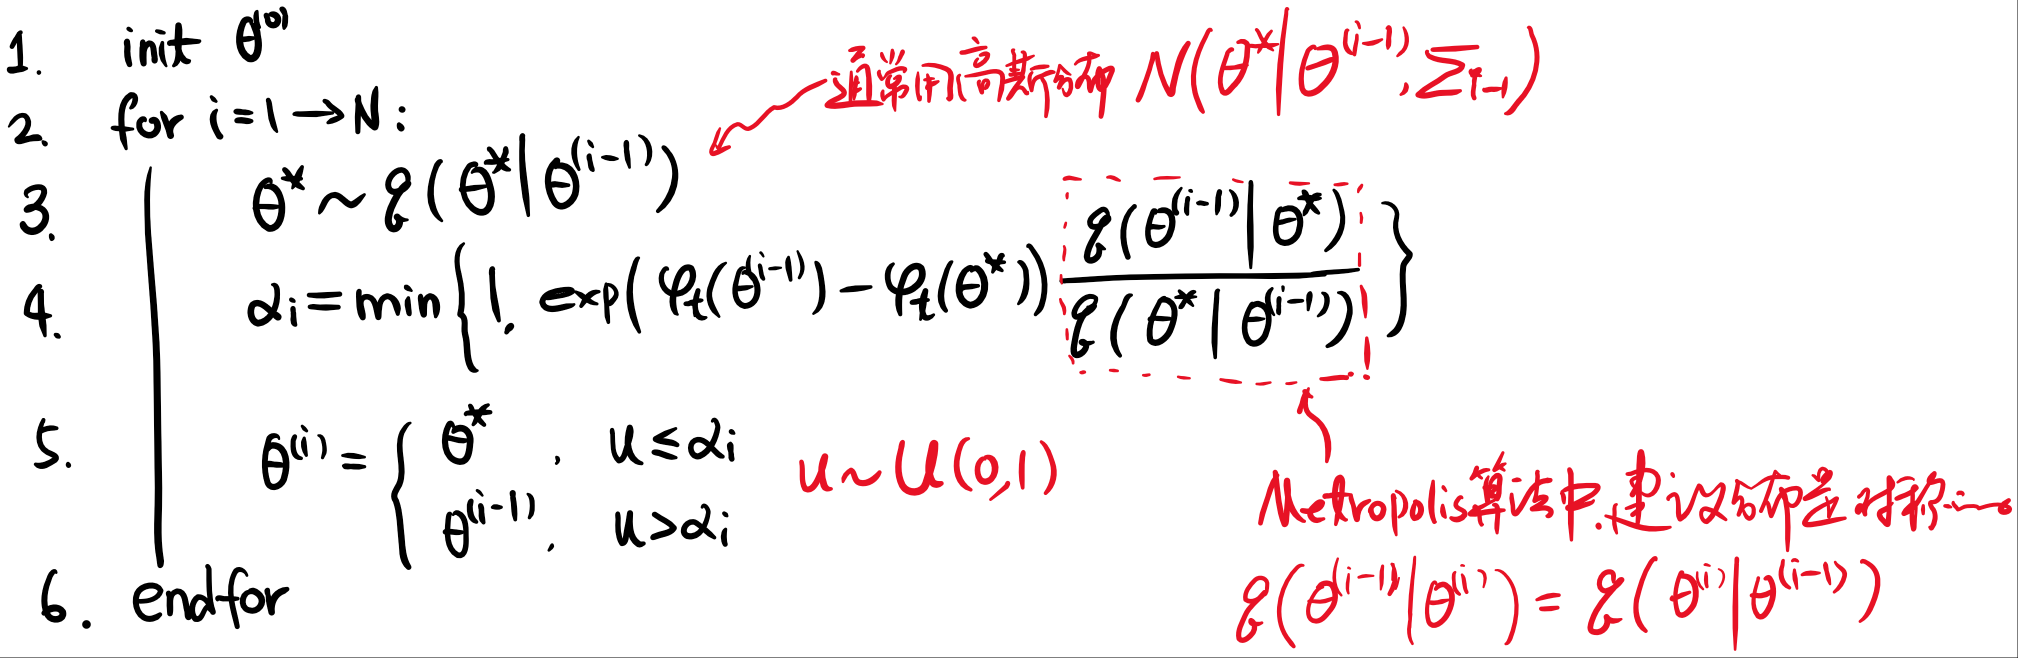 1. init θ^(0)
通常用高斯分布 N(θ*|θ^(i-1), Σ_{i-1})
2. for i=1→N:
3. θ* ~ q(θ*|θ^(i-1))
4. α_i = min { 1, exp(φ_t(θ^(i-1)) - φ_t(θ*)) q(θ^(i-1)|θ*) / q(θ*|θ^(i-1)) }
5. θ^(i) = { θ*, u ≤ α_i
θ^(i-1), u > α_i
u ~ U(0,1)
Metropolis算法中,建议分布是对称
q(θ^(i-1)|θ^(i)) = q(θ^(i)|θ^(i-1))
6. endfor